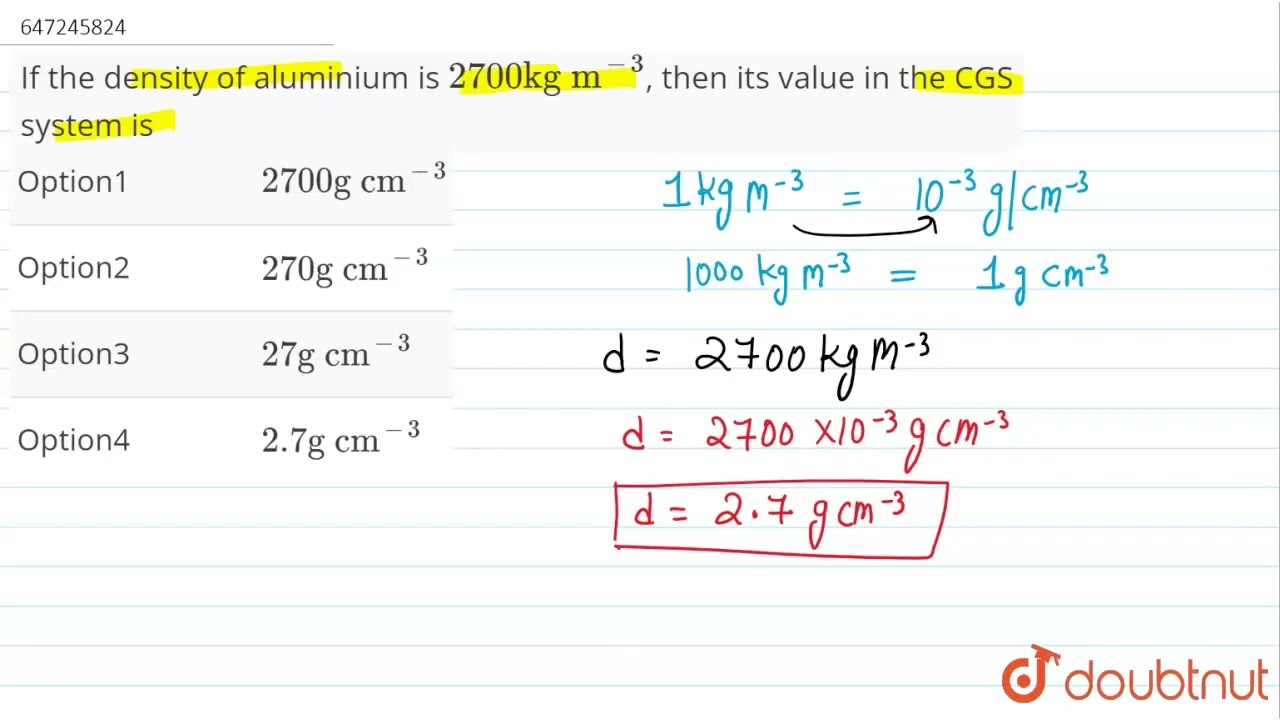 647245824
If the density of aluminium is 2700kg m⁻³, then its value in the CGS
system is
Option1 2700g cm⁻³
Option2 270g cm⁻³
Option3 27g cm⁻³
Option4 2.7g cm⁻³
1 kg m⁻³ = 10⁻³ g/cm⁻³
1000 kg m⁻³ = 1 g cm⁻³
d = 2700 kg m⁻³
d = 2700 ×10⁻³ g cm⁻³
d = 2.7 g cm⁻³
doubtnut